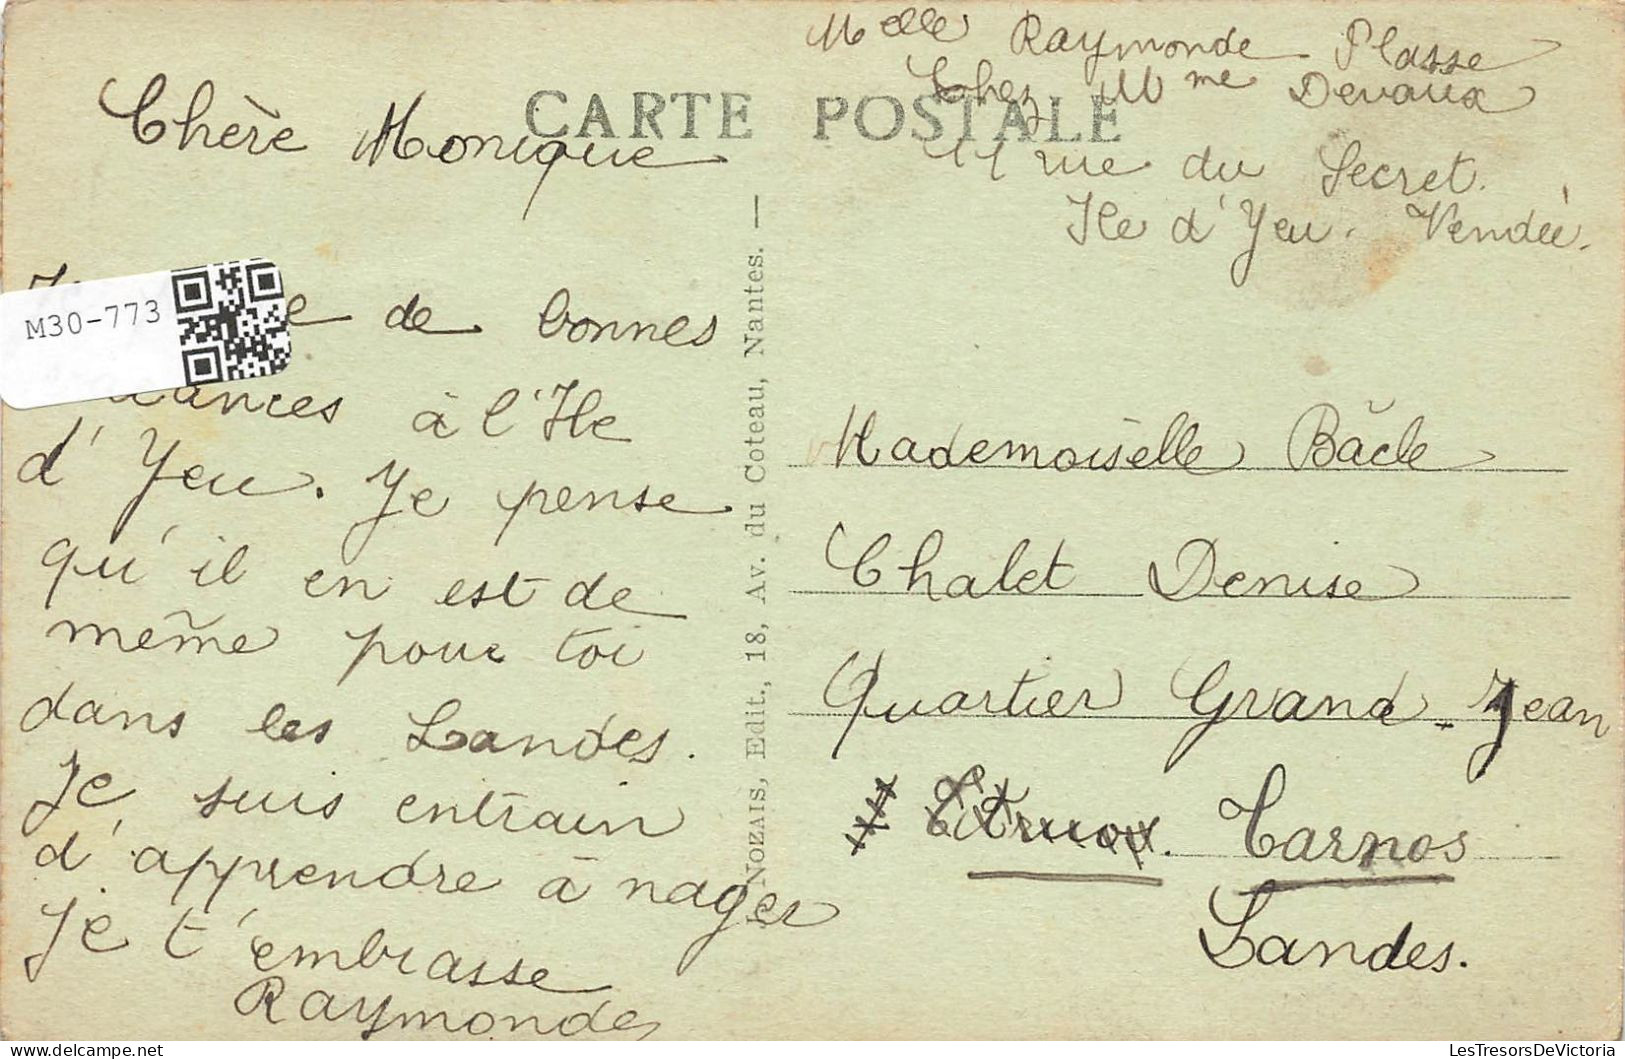 Melle Raymonde Plasse
Chez Mme Devaux
11 rue du Secret.
Ile d'Yeu. Vendée.
CARTE POSTALE
Chère Monique
M30-773
de bonnes
à l'Ile
d'Yeu. Je pense
qu'il en est de
même pour toi
dans les Landes.
Je suis entrain
d'apprendre à nager
Je t'embrasse
Raymonde
Nozais, Edit., 18, Av. du Coteau, Nantes. —
Mademoiselle Bâcle
Chalet Denise
Quartier Grand-Jean
Tarnos
Landes.
LesTresorsDeVictoria